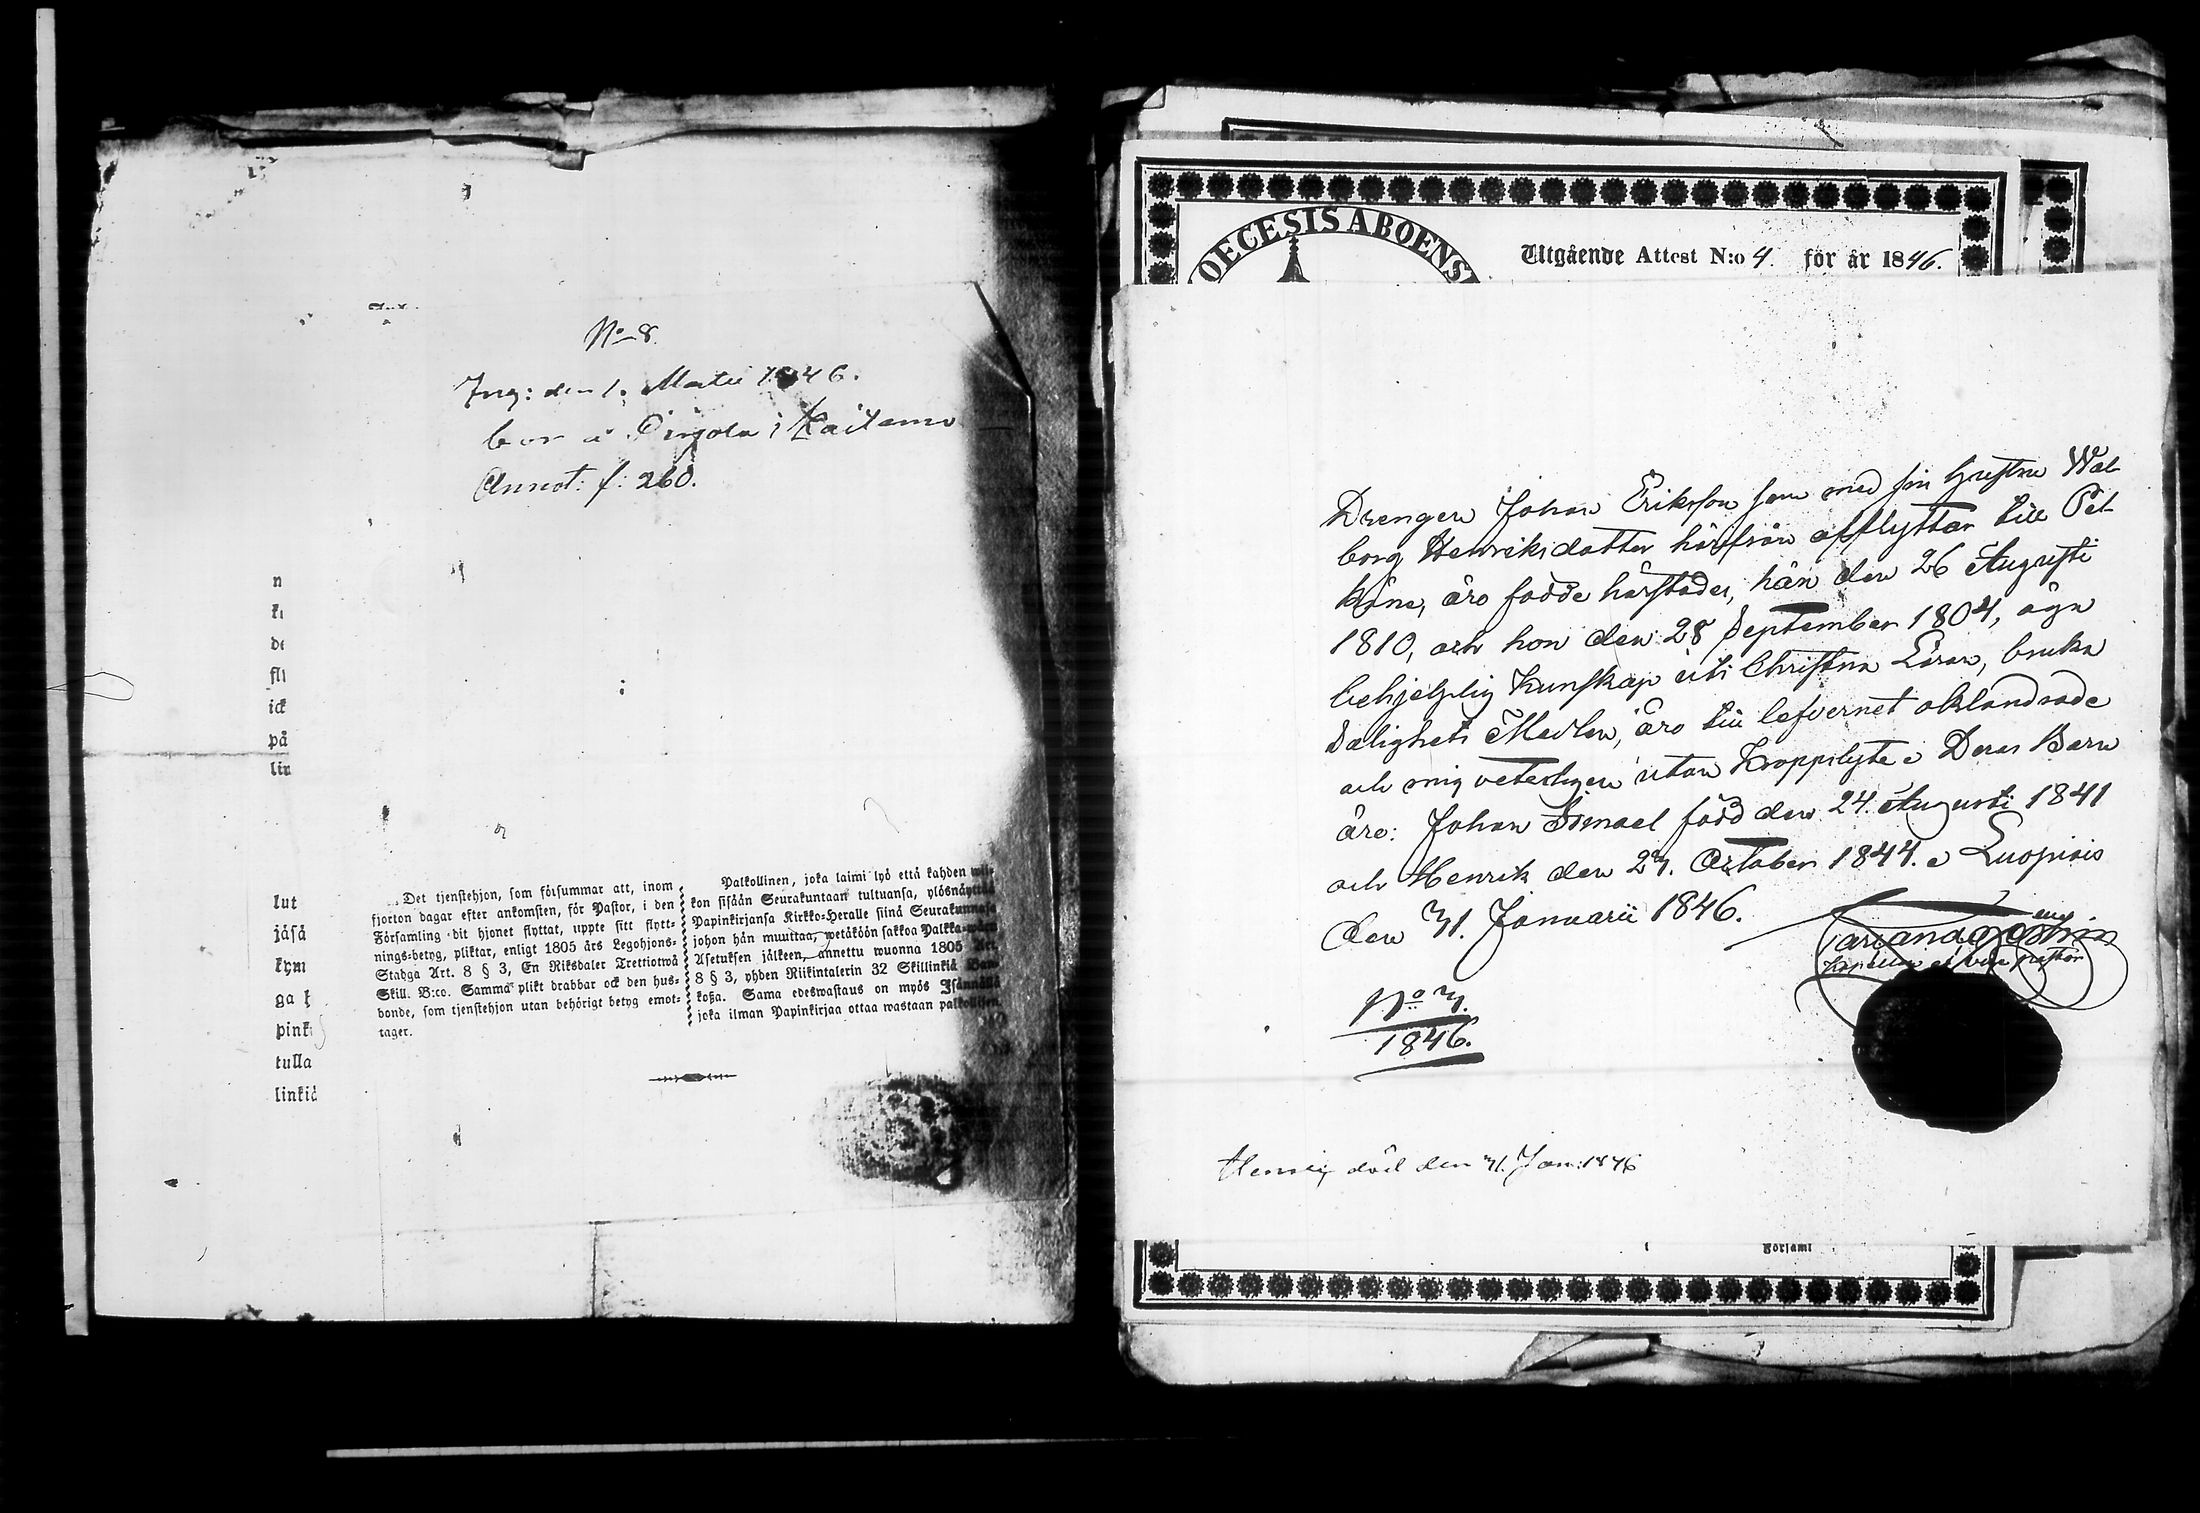 No 8.
Ing: den 1. Martii 1846.
bor å i Kaitamo
Annot: f: 260.
n
de
ick
på
lin
lut
jäsä
kym
ga
pink
tulla
linkiä
Det tjenstehjon, som försummar att, inom
fjorton dagar efter ankomsten, för Pastor, i den
Församling dit hjonet flyttat, uppte sitt flytt-
nings-betyg, pliktar, enligt 1805 års Legohjons-
Stadga Art. 8 § 3, En Riksdaler Trettiotwå
Skill. B:co. Samma plikt drabbar ock den hus-
bonde, som tjenstehjon utan behörigt betyg emot-
tager.
Palkollinen, joka laimi lyö että kahden wii-
kon sisään Seurakuntaan tultuansa, ylösnäyttää
Papinkirjansa Kirkko-Heralle siinä Seurakunnasa
johon hän muuttaa, wetäköön sakkoa Palkka-wäen
Asetuksen jälkeen, annettu wuonna 1805 Art.
8 § 3, yhden Riikintalerin 32 Skillinkiä Ban-
koßa. Sama edeswastaus on myös Isännällä
joka ilman Papinkirjaa ottaa wastaan palkollisen.
OECESIS ABOENS
Utgående Attest N:o 4 för år 1846.
Drengen Johan Eriksson som med sin hustru Wal-
borg Henriksdotter härifrån afflyttar till Päl-
käne, äro födde härstädes, han den 26 Augusti
1810, och hon den 28 September 1804, äga
behjelplig kunskap uti Christna Läran, bruka
Salighets Medlen, äro till lefvernet oklandrade
och mig veterligen utan Kroppslyte. Deras Barn
äro: Johan Ismael född den 24. Augusti 1841
och Henrik den 27. October 1844. Luopiois
den 31. Januarii 1846.
No 3.
1846.
Henrik död den 31. Jan: 1846
Församl